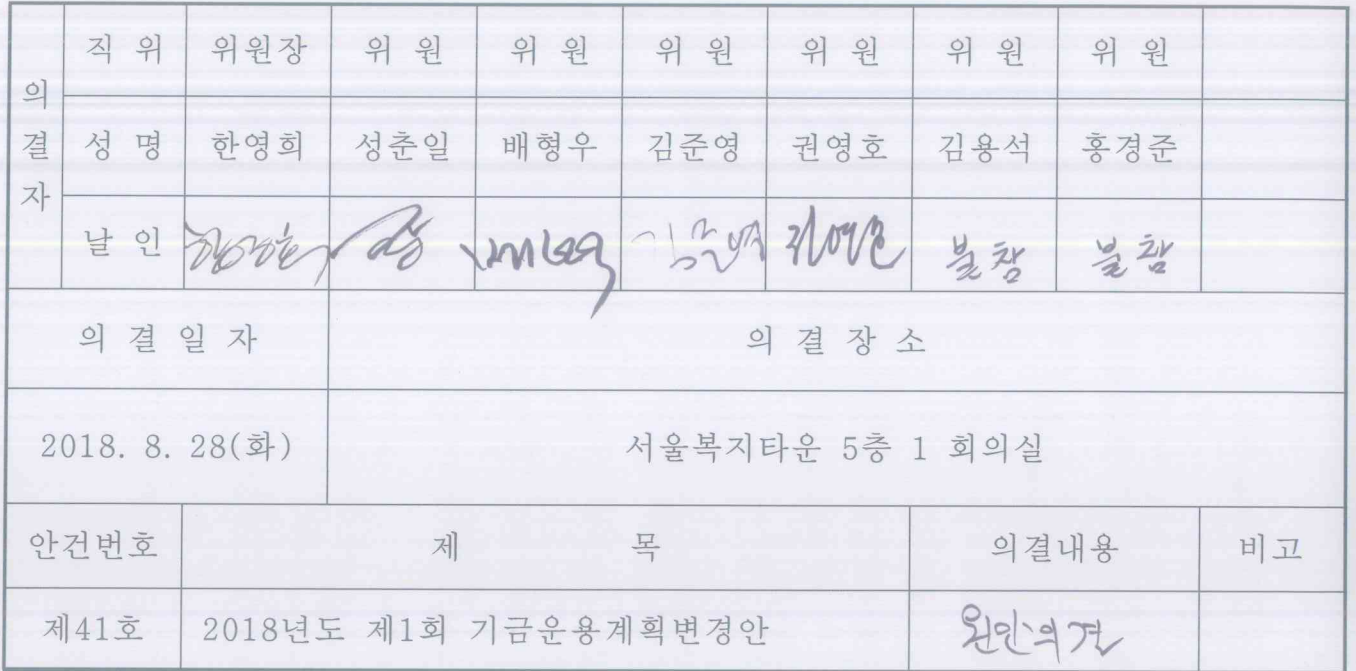 의결자
직 위 위원장 위 원 위 원 위 원 위 원 위 원 위 원
성 명 한영희 성춘일 배형우 김준영 권영호 김용석 홍경준
날 인 김준영 권영호 불참 불참
의 결 일 자 의 결 장 소
2018. 8. 28(화) 서울복지타운 5층 1 회의실
안건번호 제 목 의결내용 비고
제41호 2018년도 제1회 기금운용계획변경안 원안의결